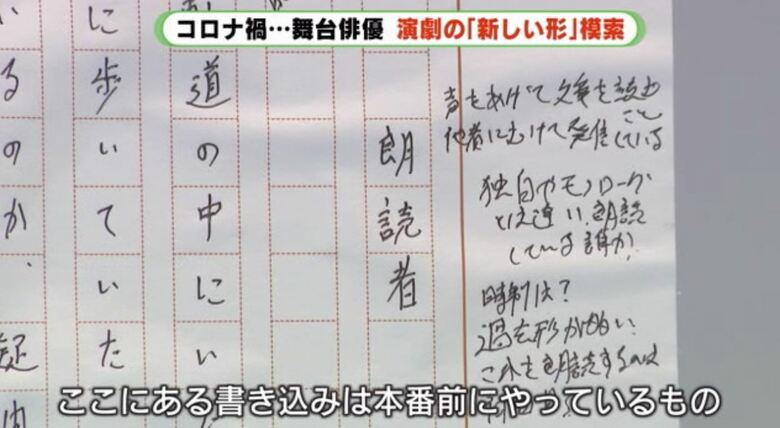 コロナ禍…舞台俳優 演劇の「新しい形」模索
声をあげて文章を読むこと
他者にむけて発信している
独白やモノローグ
とは違い、朗読
している誰か、
時制は?
過去形が多い
これを朗読するのは
朗読者
道の中にい
に歩いていた
いるのか、疑
ここにある書き込みは本番前にやっているもの